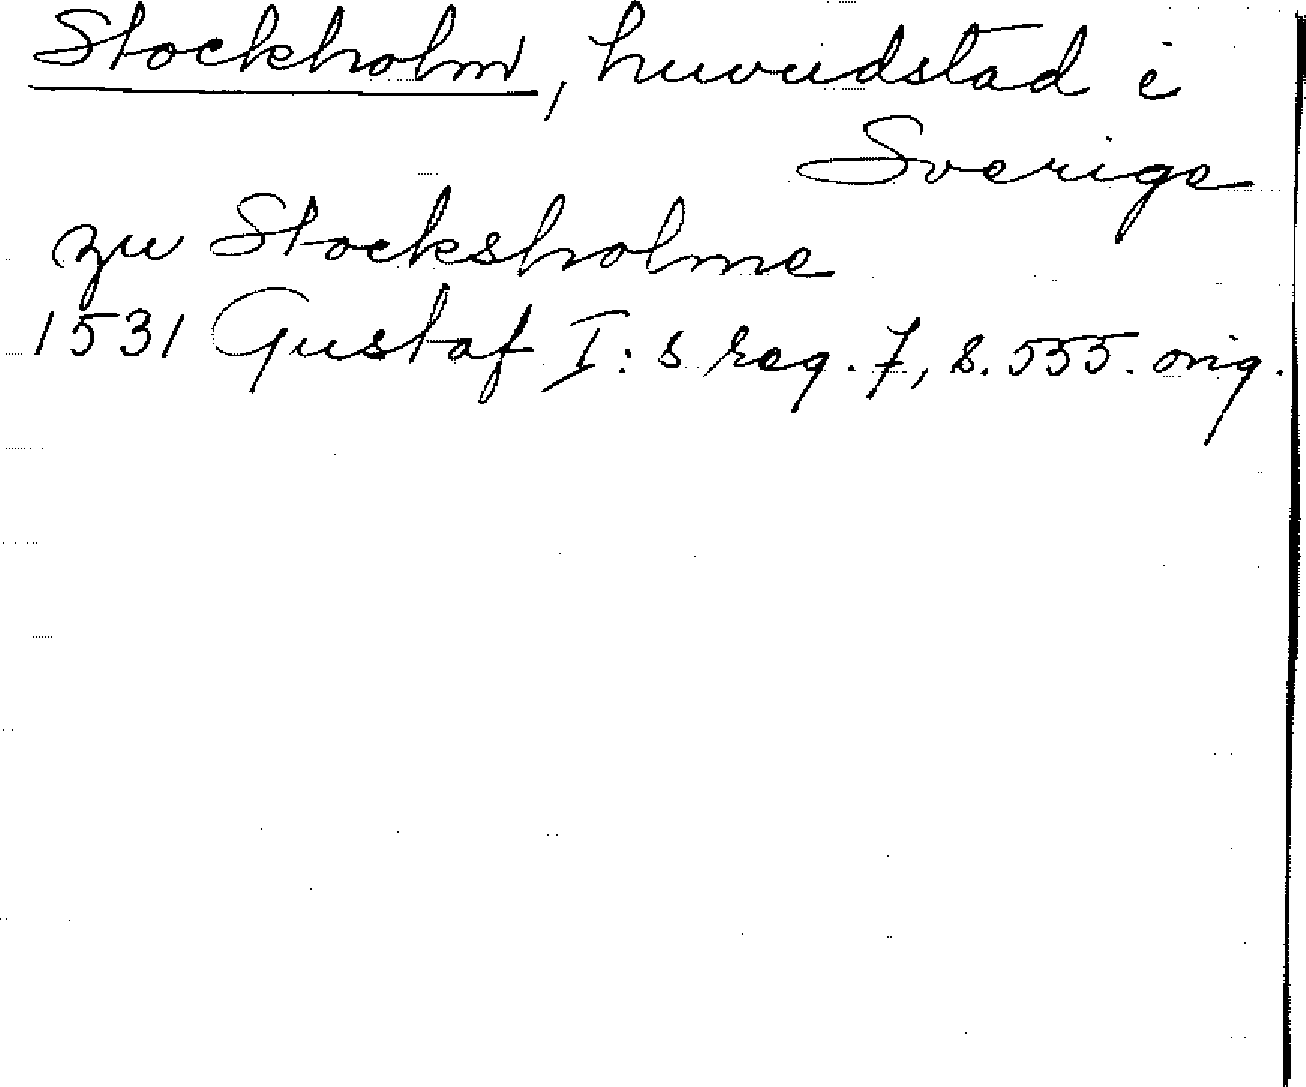 Stockholm, huvudstad i
Sverige
zu Stocksholme
1531 Gustaf I:s reg. 7, s. 555. orig.